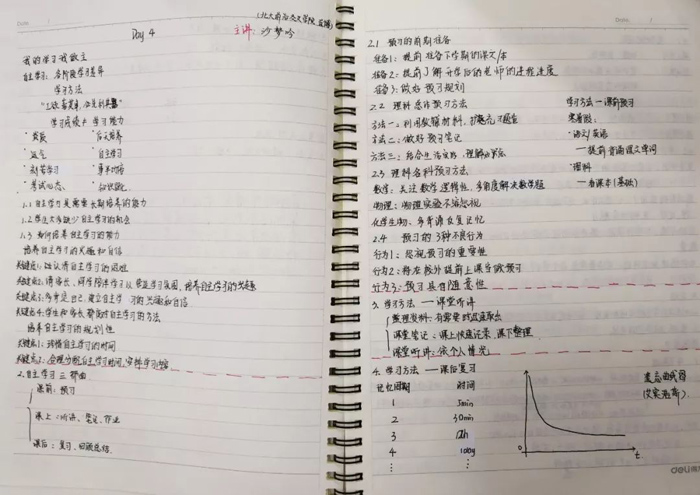 Day 4
主讲：沙梦吟
我的学习我做主
自主学习：各阶段学习差异
学习方法
学习成绩≠学习能力
运气
自主学习
刻苦学习
考试心态
1.1 自主学习是需要长期培养的能力
1.2 学生大多缺少自主学习的机会
1.3 如何培养自主学习的能力
培养自主学习的兴趣和自信
关键点1：确认有自主学习的困难
关键点2：请家长、同学陪伴学习以营造学习氛围，培养自主学习的兴趣
关键点3：多肯定自己，建立自主学习的兴趣和自信
关键点4：学生和家长都有自主学习的方法
培养自主学习的规划性
关键点1：珍惜自主学习的时间
关键点2：合理分配自主学习时间，安排学习内容
2. 自主学习三部曲
课前：预习
课上：听讲、笔记、作业
课后：复习、回顾总结
2.1 预习的前期准备
准备1：提前准备下学期的课文/本
准备2：提前了解开学后的老师的进程进度
准备3：做好预习规划
2.2 理科总体预习方法
方法一：利用教辅材料，扩充见习题库
方法二：做好预习笔记
方法三：结合生活实际，理解
2.3 理科各科预习方法
数学：关注数学逻辑性，多角度解决数学题
物理：物理实验不容忽视
化学生物：多背诵反复记忆
2.4 预习的3种不良行为
行为1：忽视预习的重要性
行为2：将在校外提前上课当做预习
行为3：预习具有随意性
学习方法—课前预习
寒暑假：
·语文/英语
—提前背诵课文单词
·理科
—看课本(基础)
3. 学习方法——课堂听讲
整理资料：有需要时迅速取出
课堂笔记：课上快速记录，课下整理
课堂听讲：依个人情况
4. 学习方法——课后复习
记忆周期 时间
1 5min
2 30min
3 12h
4 1day
⋮ ⋮
遗忘曲线图
0
t
deli